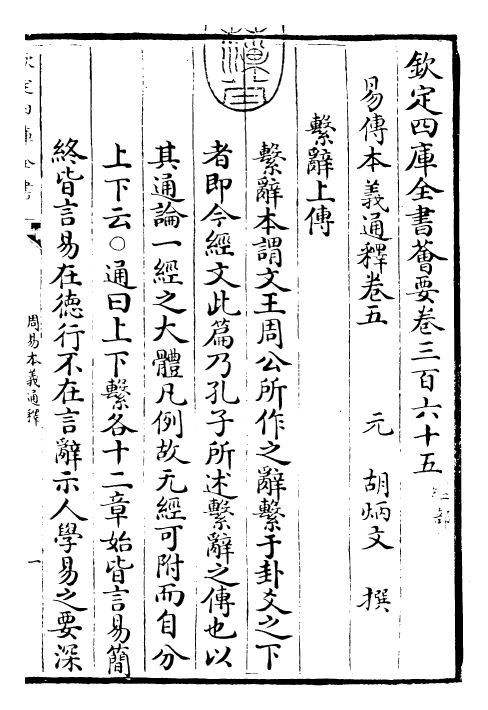 欽定四庫全書薈要卷三百六十五
經部
易傳本義通釋卷五
元 胡炳文 撰
繫辭上傳
繫辭本謂文王周公所作之辭繫于卦爻之下
者即今經文此篇乃孔子所述繫辭之傳也以
其通論一經之大體凡例故无經可附而自分
上下云○通曰上下繫各十二章始皆言易簡
終皆言易在徳行不在言辭示人學易之要深
欽定四庫全書
周易本義通釋
一